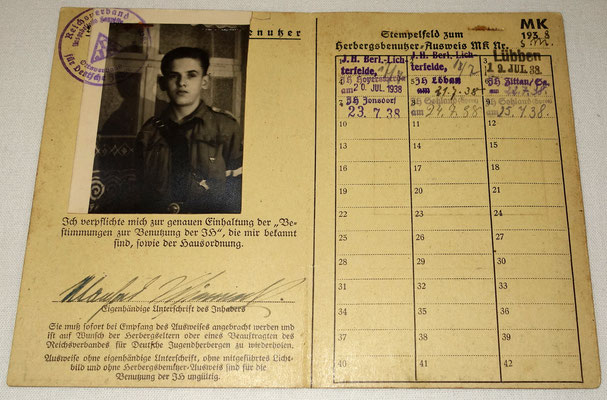 Reichsverband
für Deutsche
enutzer
Ich verpflichte mich zur genauen Einhaltung der „Be-
stimmungen zur Benutzung der JH“, die mir bekannt
sind, sowie der Hausordnung.
Eigenhändige Unterschrift des Inhabers
Sie muß sofort bei Empfang des Ausweises angebracht werden und
ist auf Wunsch der Herbergseltern oder eines Beauftragten des
Reichsverbandes für Deutsche Jugendherbergen zu wiederholen.
Ausweise ohne eigenhändige Unterschrift, ohne mitgeführtes Licht-
bild und ohne Herbergsbenutzer-Ausweis sind für die
Benutzung der JH ungültig.
MK
Stempelfeld zum 193 8
Herbergsbenutzer-Ausweis MK Nr.
J. H. Berl.-Lich-
terfelde,
JH Hoyerswerda
am 20. JUL. 1938
JH Jonsdorf
23.7.38
J. H. Berl.-Lich-
terfelde,
JH Löbau
am 21.7.38
JH Sohland
am 24.7.38
Lübben
19. JUL. 38
JH Zittau/Sa.
am 22.7.38
JH Sohland
am 25.7.38.
10 11 12
13 14 15
16 17 18
19 20 21
22 23 24
25 26 27
28 29 30
31 32 33
34 35 36
37 38 39
40 41 42